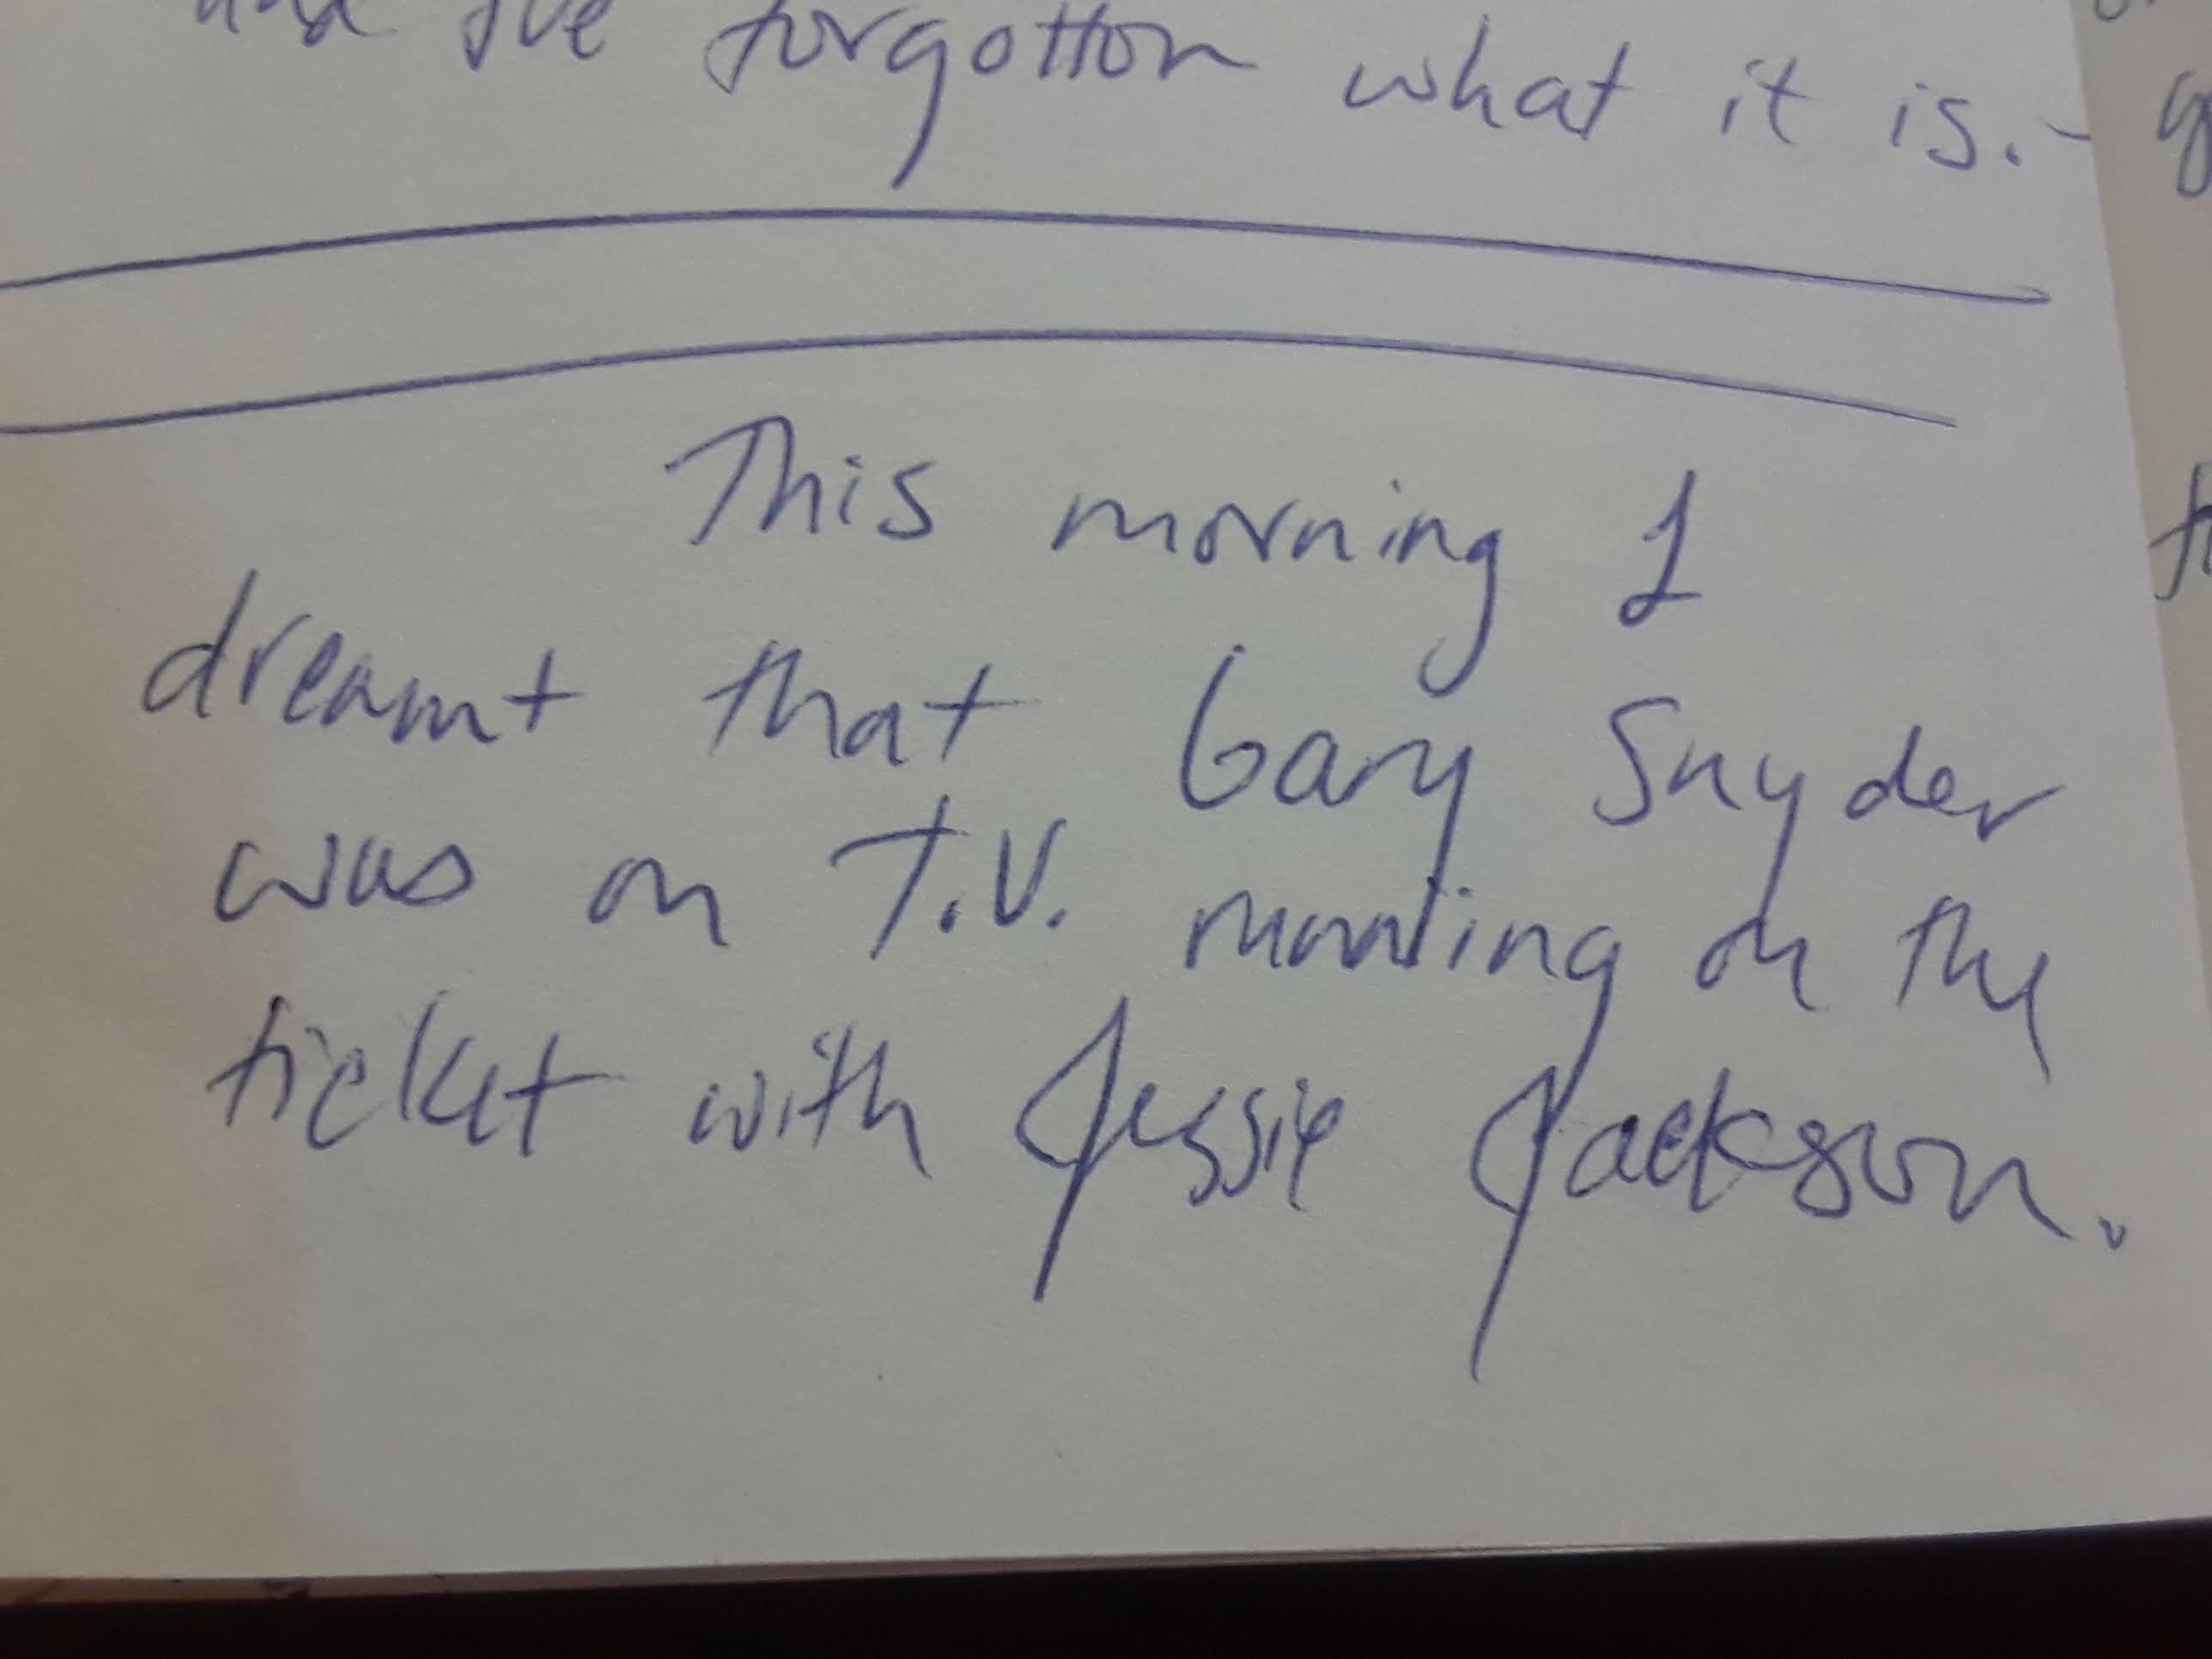 and I've forgotton what it is.-
This morning I
dreamt that Gary Snyder
was on T.V. running on the
ticket with Jessie Jackson.